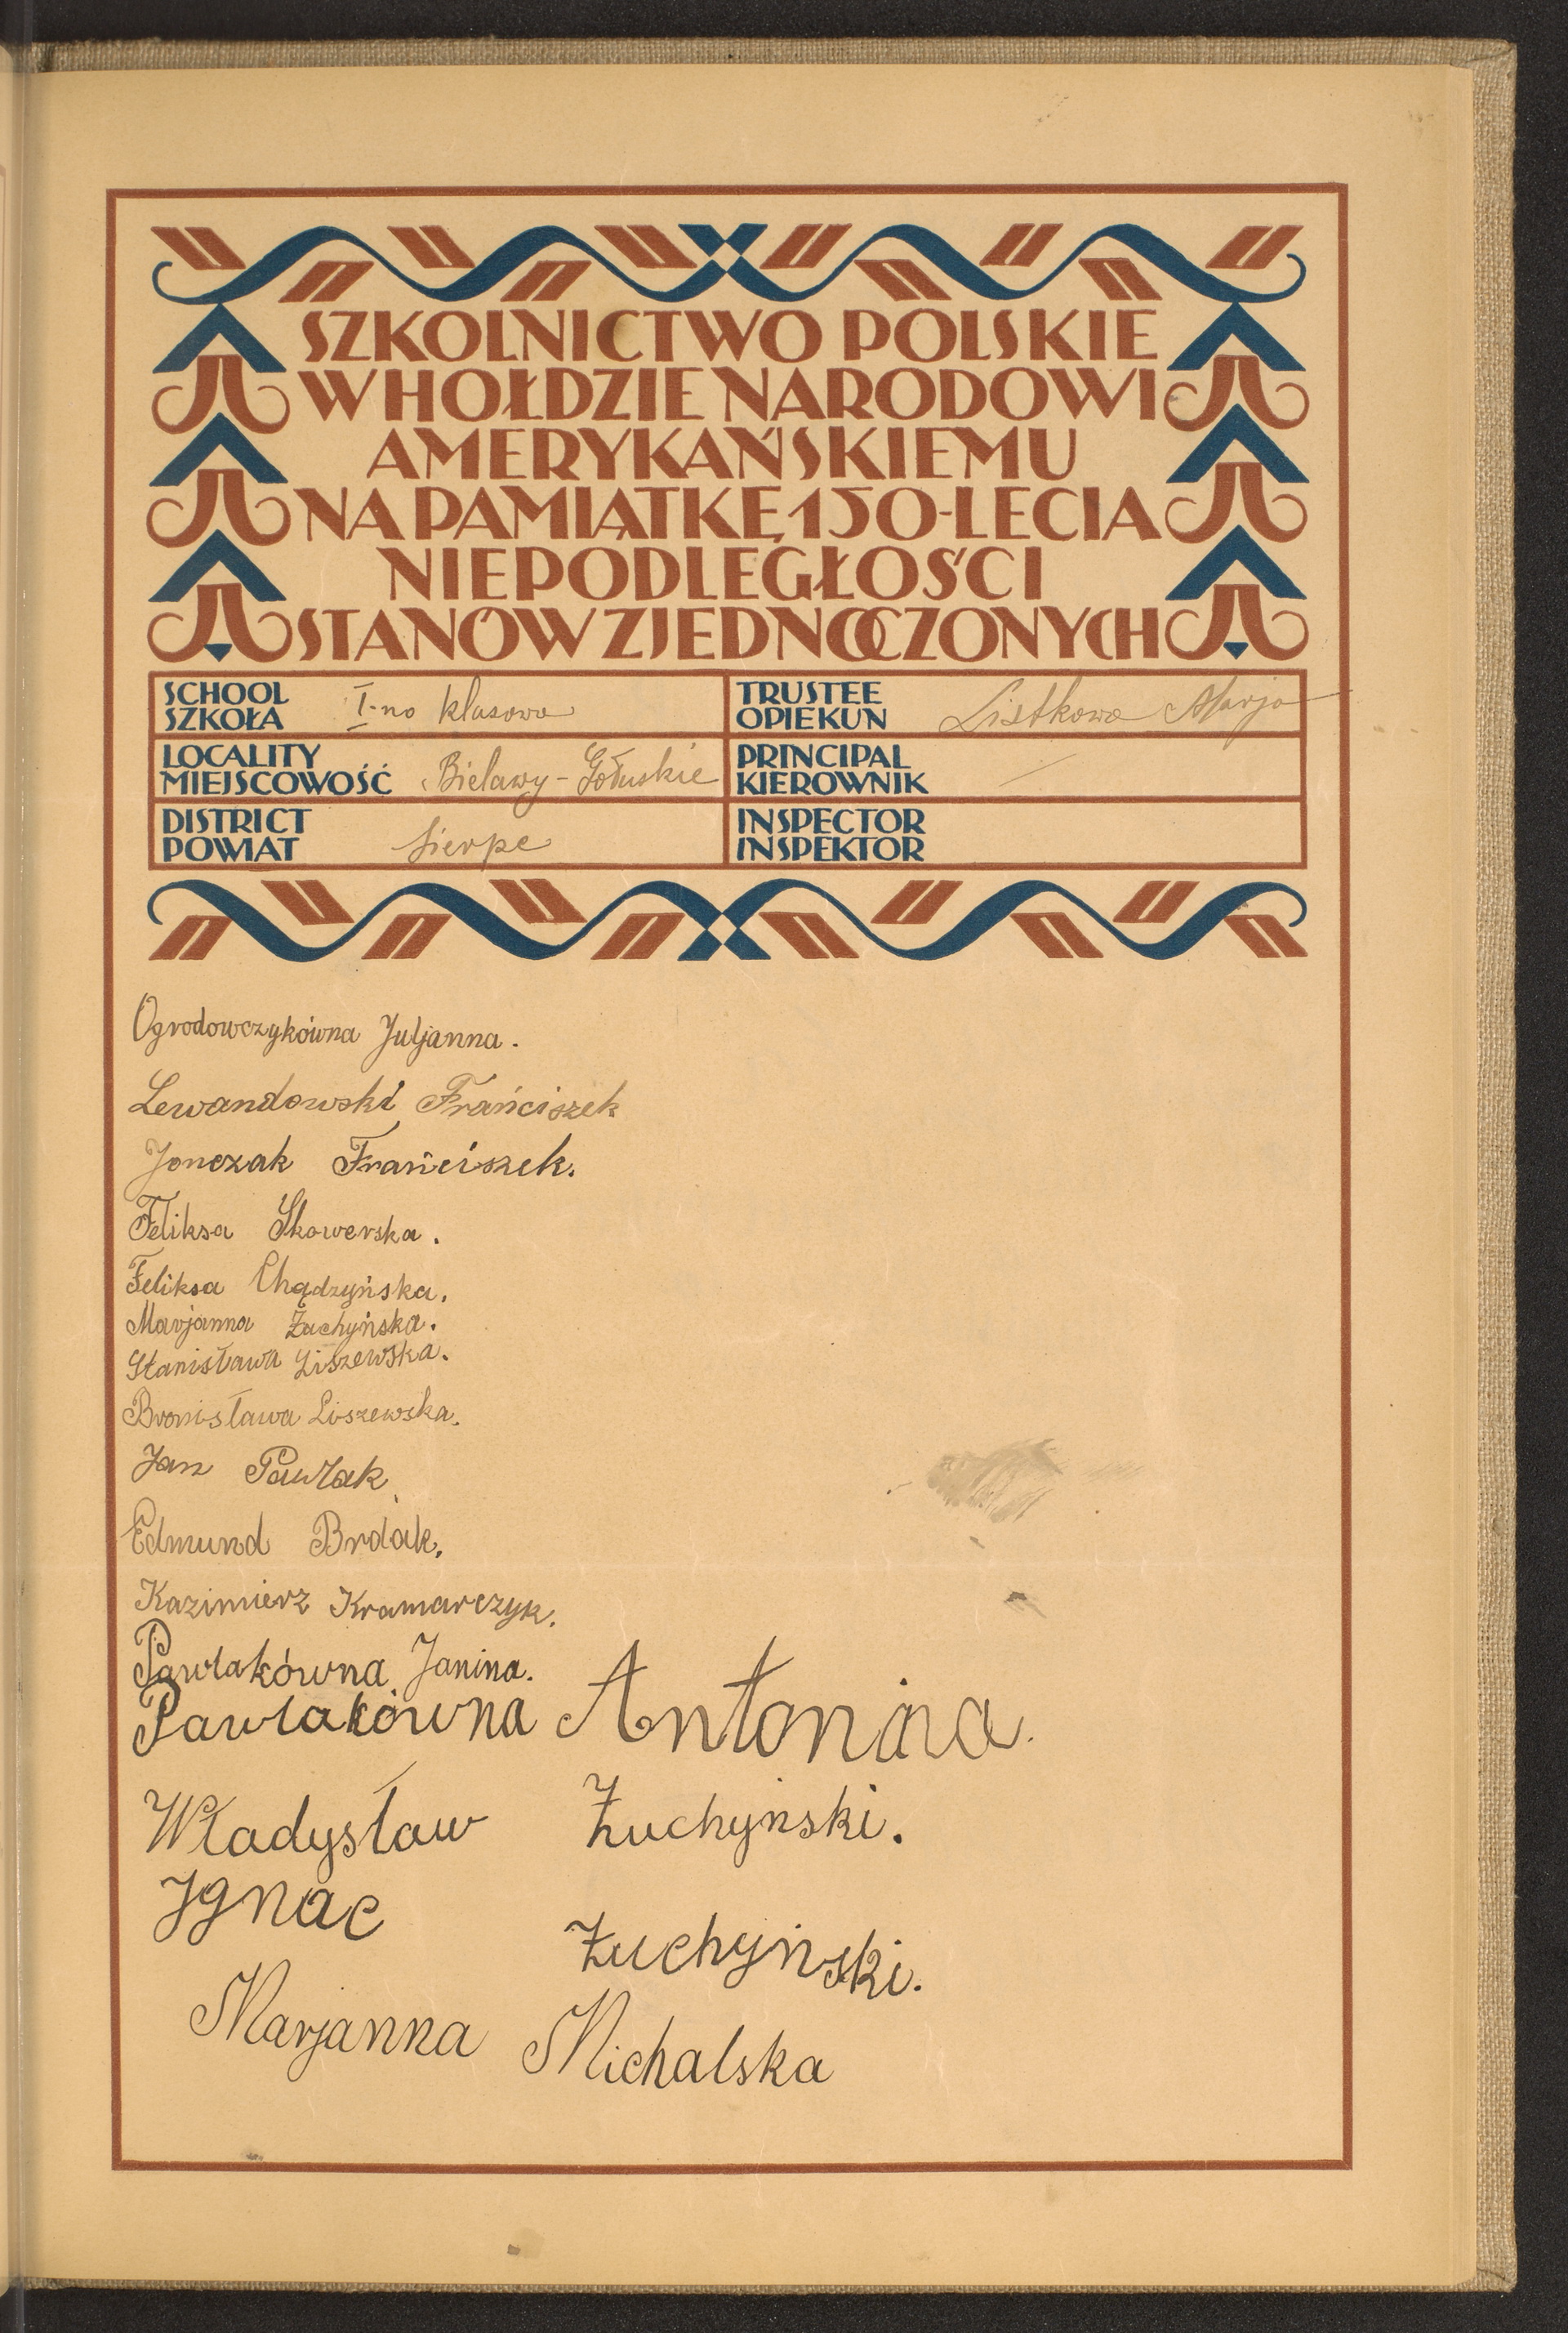 SZKOLNICTWO POLSKIE
W HOŁDZIE NARODOWI
AMERYKAŃSKIEMU
NA PAMIĄTKĘ 150-LECIA
NIEPODLEGŁOŚCI
STANÓW ZJEDNOCZONYCH
SCHOOL
SZKOŁA I-no klasowa
TRUSTEE
OPIEKUN Listkowa Marja
LOCALITY
MIEJSCOWOŚĆ Bielawy-Gołuskie
PRINCIPAL
KIEROWNIK —
DISTRICT
POWIAT Sierpc
INSPECTOR
INSPEKTOR
Ogrodowczykówna Juljanna.
Lewandowski Frańciszek
Jonczak Frańciszek.
Feliksa Skowerska.
Feliksa Chądzyńska.
Marjanna Żuchyńska.
Stanisława Liszewska.
Bronisława Liszewska.
Jan Pawlak
Edmund Brdak.
Kazimierz Kramarczyk.
Pawlakówna Janina.
Pawlakówna Antonina.
Władysław Żuchyński.
Ignac Żuchyński.
Marjanna Michalska